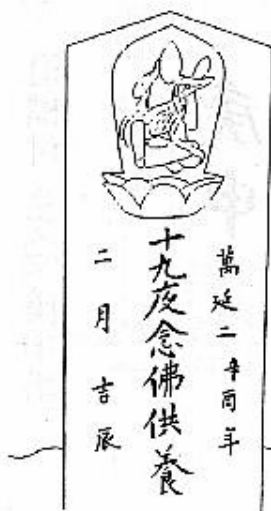 萬延二辛酉年
十九夜念佛供養
二月吉辰